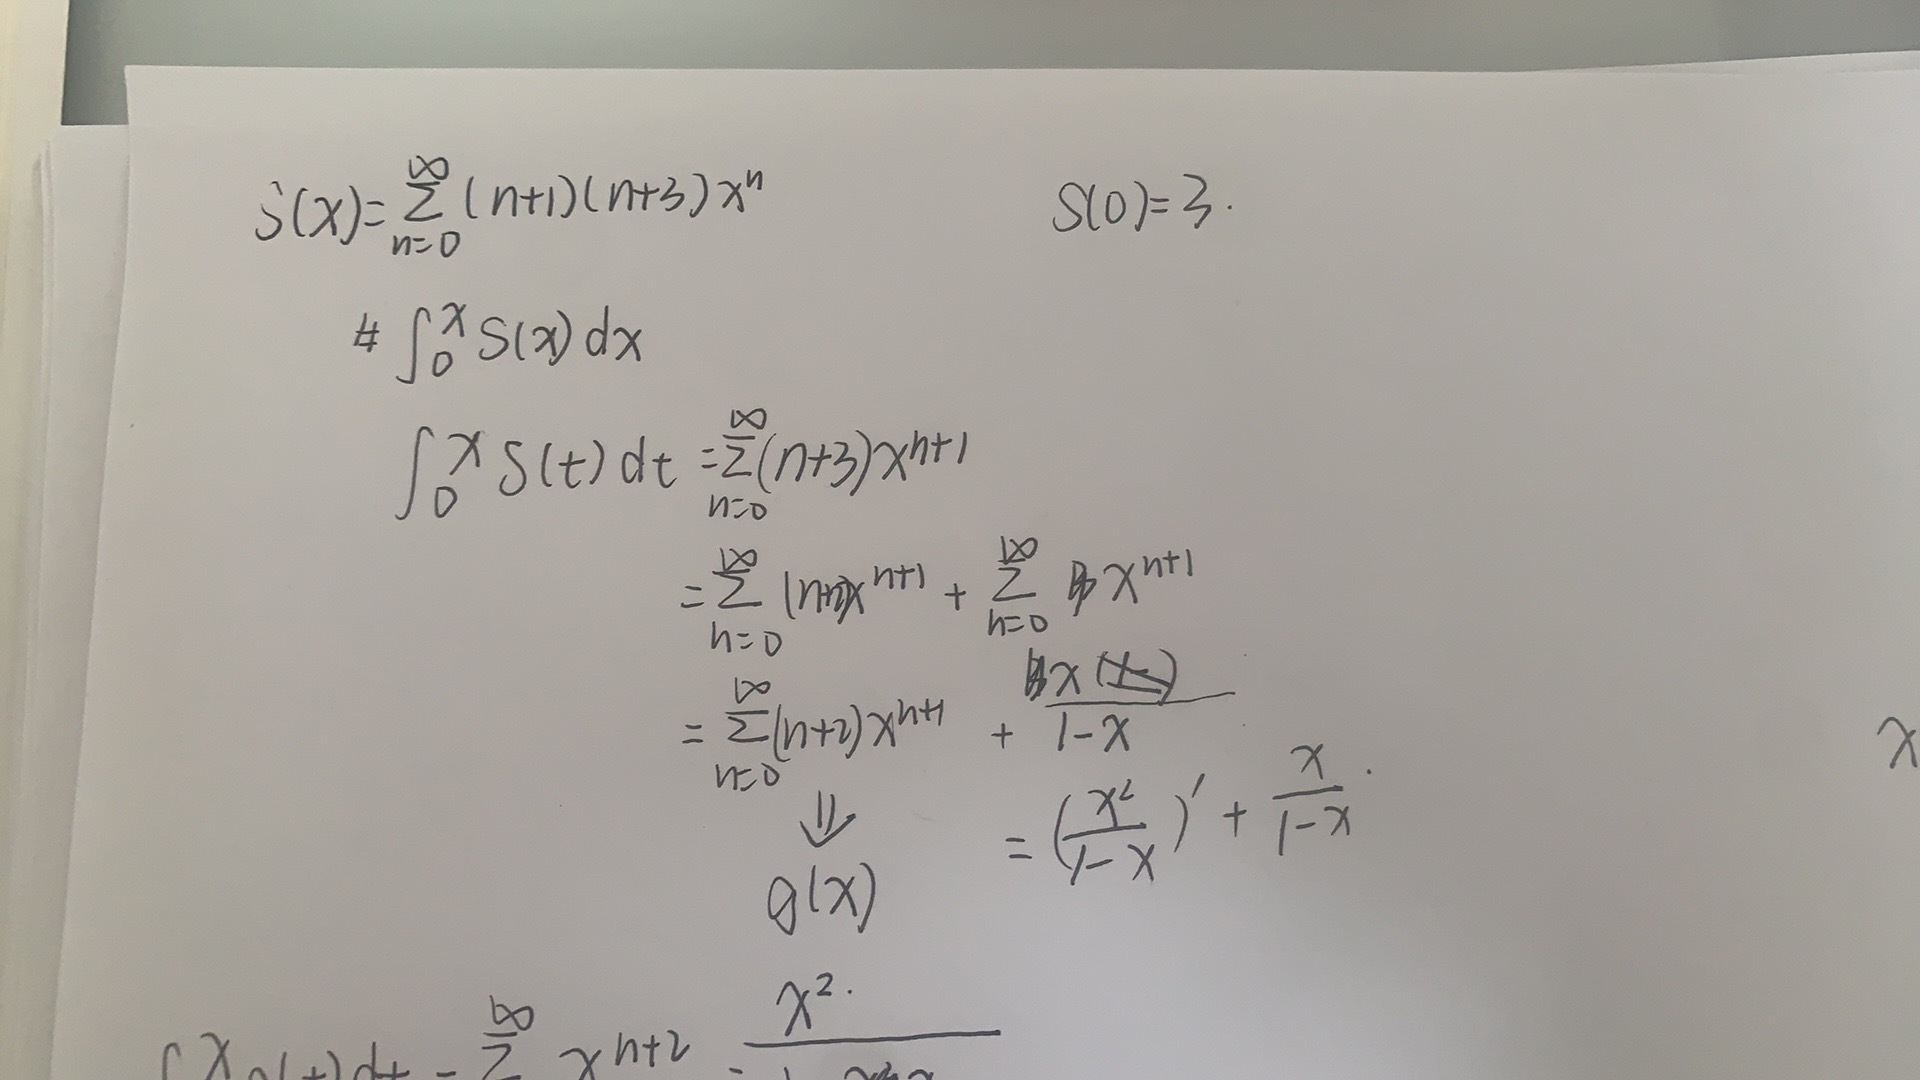 S(x)=∑_{n=0}^{∞}(n+1)(n+3)x^n    S(0)=3.
∫_0^x S(x)dx
∫_0^x S(t)dt=∑_{n=0}^{∞}(n+3)x^{n+1}
=∑_{n=0}^{∞}(n+2)x^{n+1}+∑_{n=0}^{∞}x^{n+1}
=∑_{n=0}^{∞}(n+2)x^{n+1}+\frac{x}{1-x}
⇓ =(\frac{x^2}{1-x})'+\frac{x}{1-x}.
g(x)
∫^x g(t)dt=∑^{∞}x^{n+2}=\frac{x^2.}{}
x